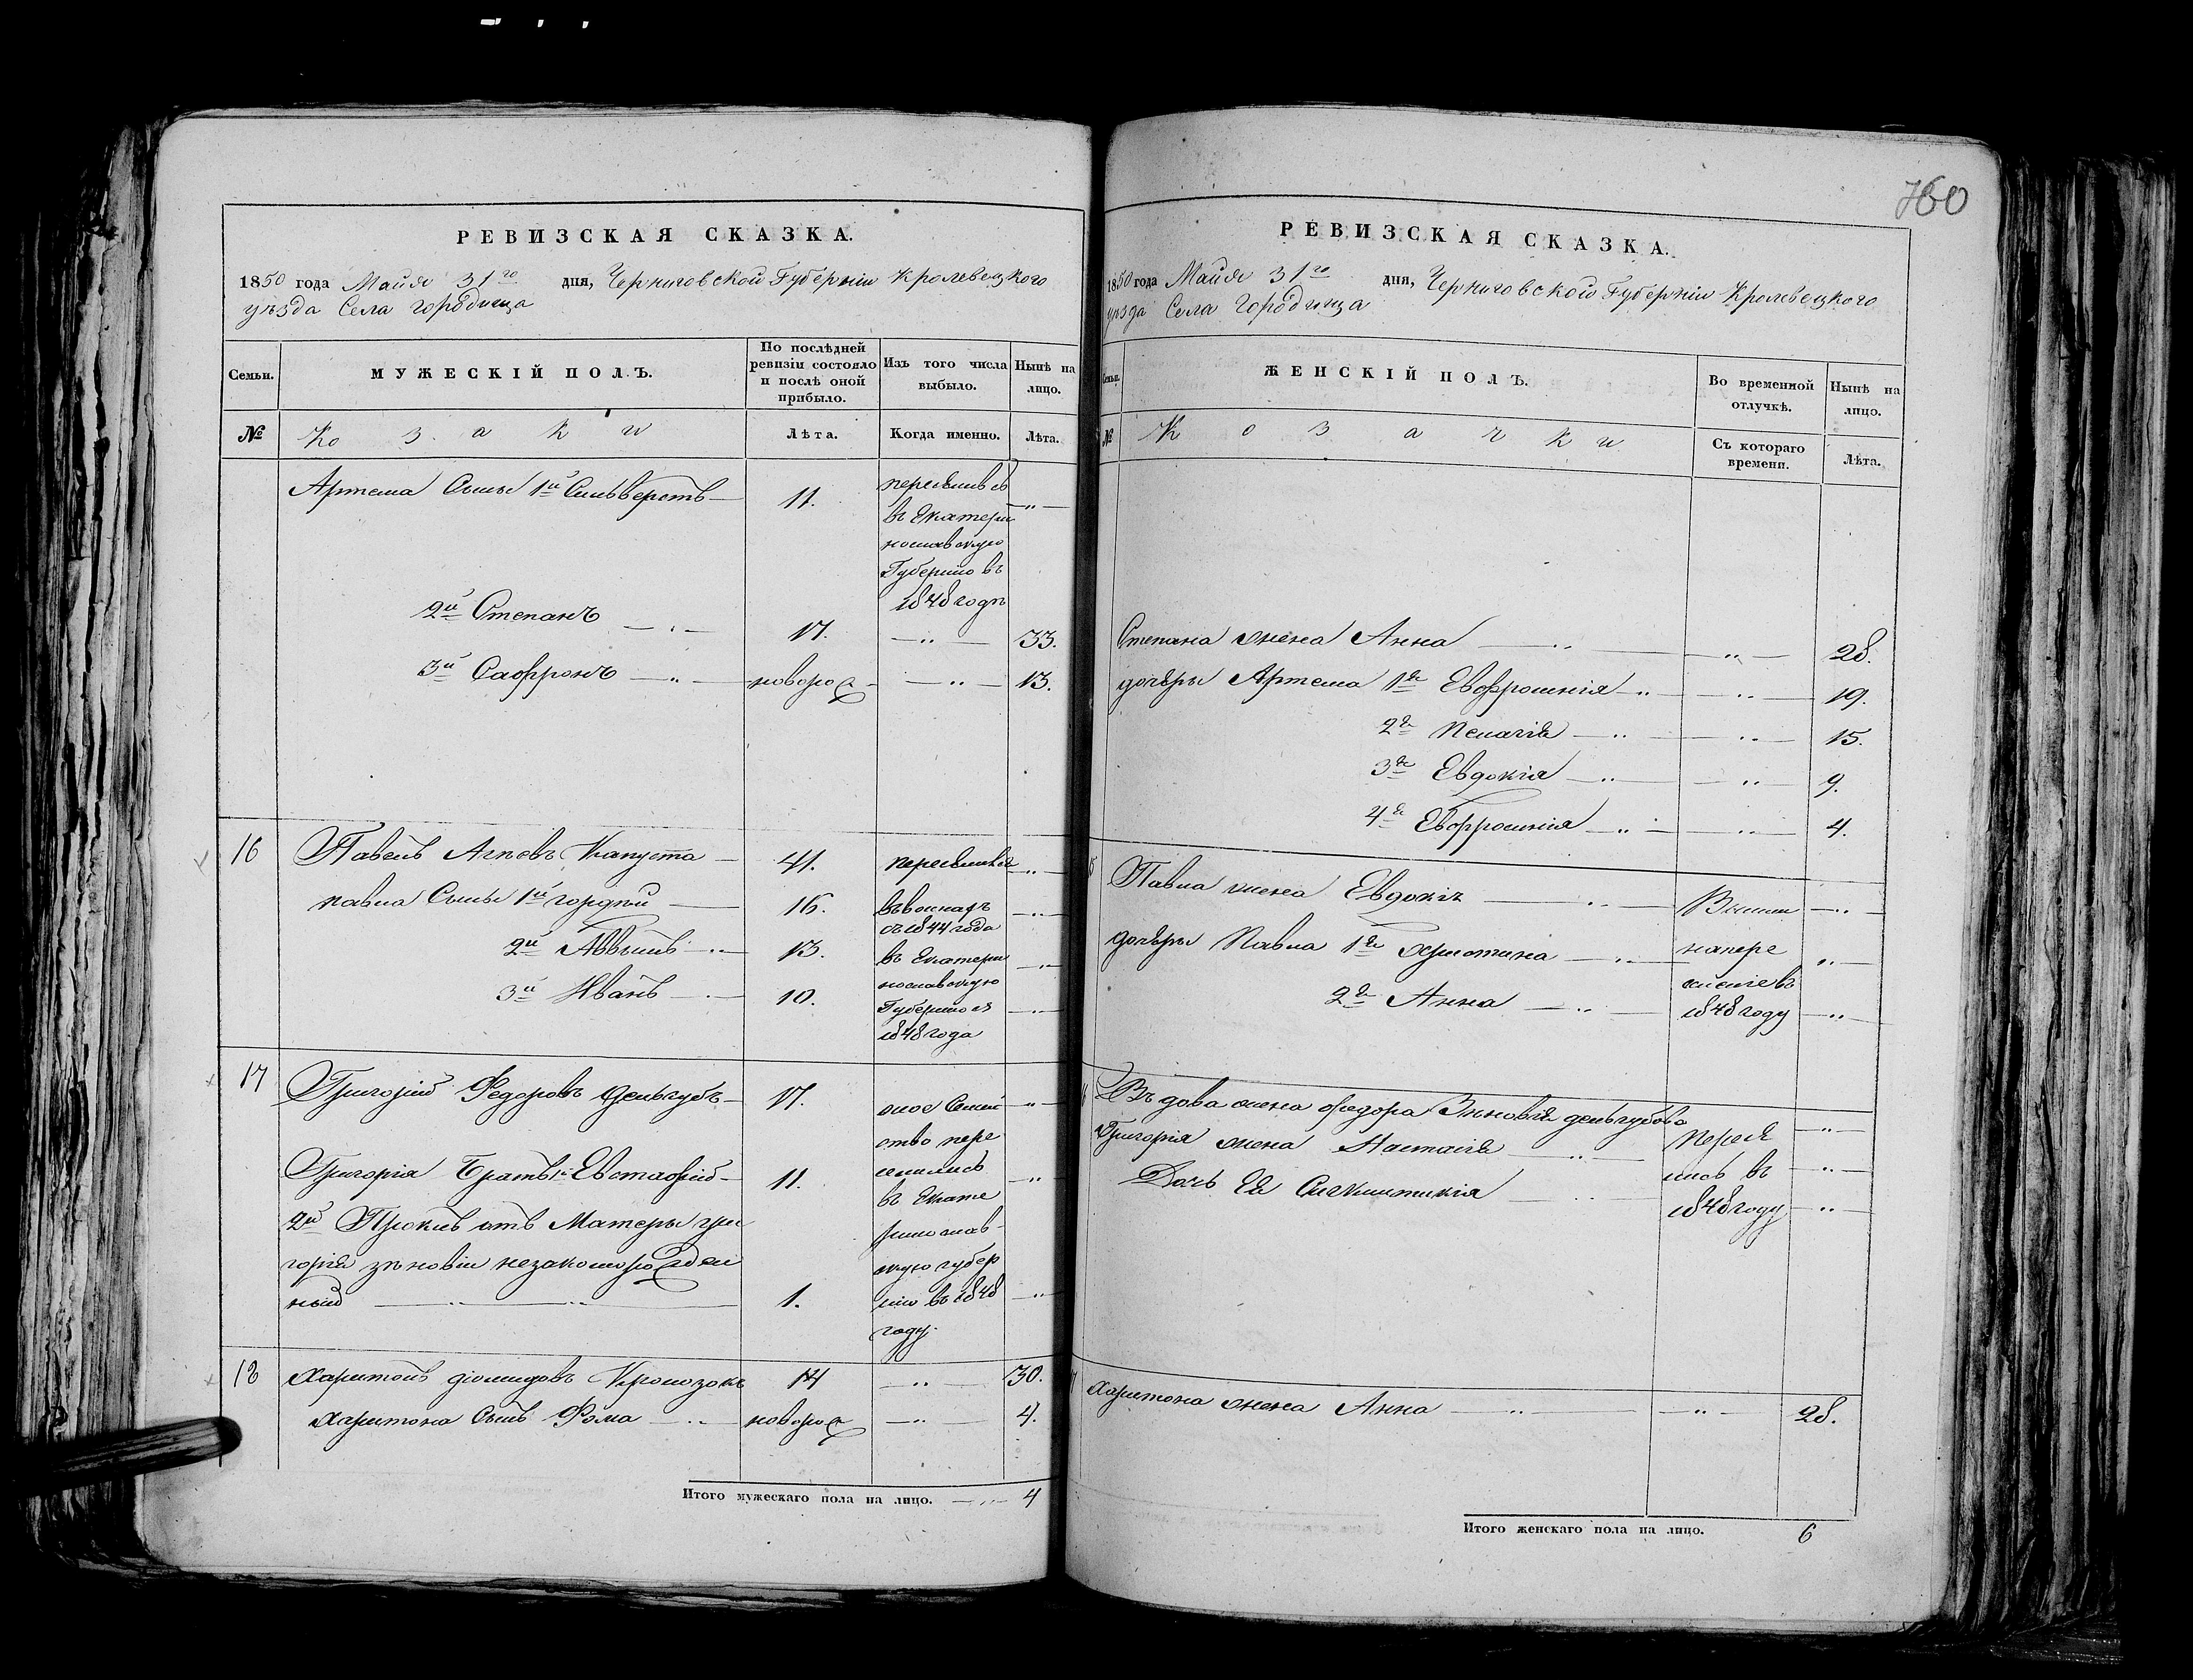 760
РЕВИЗСКАЯ СКАЗКА.
1850 года Майя 31го дня, Черниговской Губерніи Кролевецкого
уѣзда Села Городища
Семьи.
МУЖЕСКІЙ ПОЛЪ.
По послѣдней ревизіи состояло и послѣ оной прибыло.
Изъ того числа выбыло.
Нынѣ на лицо.
№
Козаки
Лѣта.
Когда именно.
Лѣта.
Артема Сыны 1й Сильверстъ 11.
переселився
въ Екатери
нославскую
Губернію въ
1848 годѣ
2й Степанъ 17. 33.
3й Сафронъ новорож 13.
16 Павелъ Агѣевъ Капуста 41. переселився
павла Сыны 1й гордѣй 16.
съ 1844 года
2й 13. въ Екатери
нославскую
3й Иванъ 10.
Губернію
1848 года
17 Григорій Федоровъ 17.
оное Семей
ство пере
селилось
въ Екате
ринослав
скую губер
нію въ 1848
году.
Григорія Братья 1й Евстафій 11.
2й Прокипъ отъ Матеры гри
горія зѣновіи незаконорожден
ный 1.
18 Харитонъ діомидовъ 14 30.
Харитона Сынъ Фома новорож 4.
Итого мужескаго пола на лицо. 4
РЕВИЗСКАЯ СКАЗКА.
1850 года Майя 31го дня, Черниговской Губерніи Кролевецкого
уѣзда Села Городища
Семьи.
ЖЕНСКІЙ ПОЛЪ.
Во временной отлучкѣ.
Нынѣ на лицо.
№
Козачки
Съ котораго времени.
Лѣта.
Степана жена Анна 28.
дочеры Артема 1я Евфросинія 19.
2я Пелагія 15.
3я Евдокія 9.
4я Евфросинія 4.
Павла жена Евдокія
дочеры Павла 1я Христина
напере
2я Анна
1848 году
Въдова жена федора Зиновія
Григорія жена Настасія
Дочь Ея
въ
1848 году
Харитона жена Анна 28.
Итого женскаго пола на лицо. 6